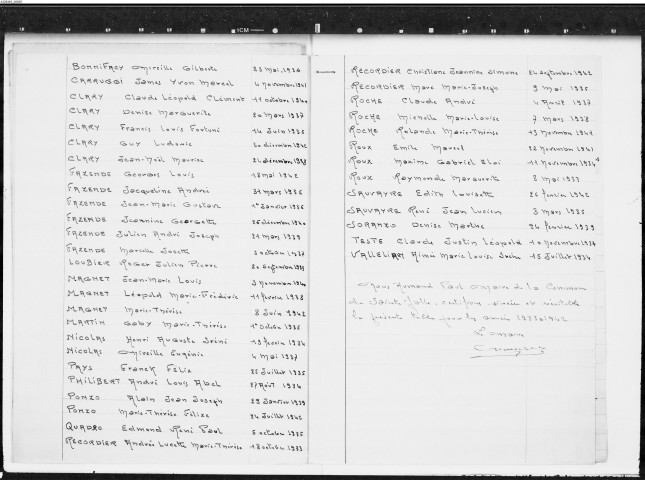 BONNIFACY Mireille Gilberte 23 Mai, 1936
CARRUGGI James Yvon Marcel 4 Novembre 1941
CLARY Claude Léopold Clément 11 octobre 1940
CLARY Denise Marguerite 20 mars 1937
CLARY Francis Louis Fortuné 14 Juin 1935
CLARY Guy Ludovic 30 décembre 1940
CLARY Jean-Noël Maurice 21 décembre 1938
FAZENDE Georges Louis 18 Mai 1942
FAZENDE Jacqueline Andrée 31 mars 1936
FAZENDE Jean-Marie Gustave 1er Janvier 1936
FAZENDE Jeannine Georgette 26 décembre 1940
FAZENDE Julien André Joseph 21 Mars 1939
FAZENDE Marcelle Josette 3 octobre 1937
LOUBIER Roger Julien Pierre 20 Septembre
MAGNET Jean-Marie Louis 3 Novembre 1940
MAGNET Léopold Marie-Frédéric 11 février 1938
MAGNET Marie-Thérèse 8 Juin 1942
MARTIN Gaby Marie-Thérèse 1er octobre 1935
NICOLAS Henri Auguste René 13 février 1934
NICOLAS Mireille Eugénie 4 Mai 1937
PAYS Franck Félix 25 Juillet 1935
PHILIBERT André Louis Abel 27 Août 1934
PONZO Alain Jean Joseph 29 Janvier 1939
PONZO Marie-Thérèse Félixe 24 Juillet 1942
QUADRO Edmond René Paul 5 octobre 1935
RECORDIER Andrée Lucette Marie-Thérèse 18 octobre 1933
RECORDIER Christiane Jeannine Simone 24 Septembre 1942
RECORDIER Marc Marie-Joseph 9 Mai 1935
ROCHE Claude André 4 Août 1937
ROCHE Michelle Marie-Louise 7 mars 1938
ROCHE Rolande Marie-Thérèse 13 Novembre 1941
ROUX Emile Marcel 22 Novembre 1941
ROUX Maxime Gabriel Eloi 11 Novembre 1934
ROUX Raymonde Marguerite 2 Mai 1937
SAUVAYRE Edith Louisette 26 février 1942
SAUVAYRE René Jean Lucien 3 Mars 1935
SORANZO Denise Marthe 24 février 1939
TESTE Claude Justin Léopold 10 Novembre 1934
VALLELIAN Aimée Marie Louise 15 Juillet 1934
Nous Armand Paul Maire de la Commune
de Sainte-Jalle, certifions sincère et véritable
la présente table pour les années 1933 à 1942
Le Maire